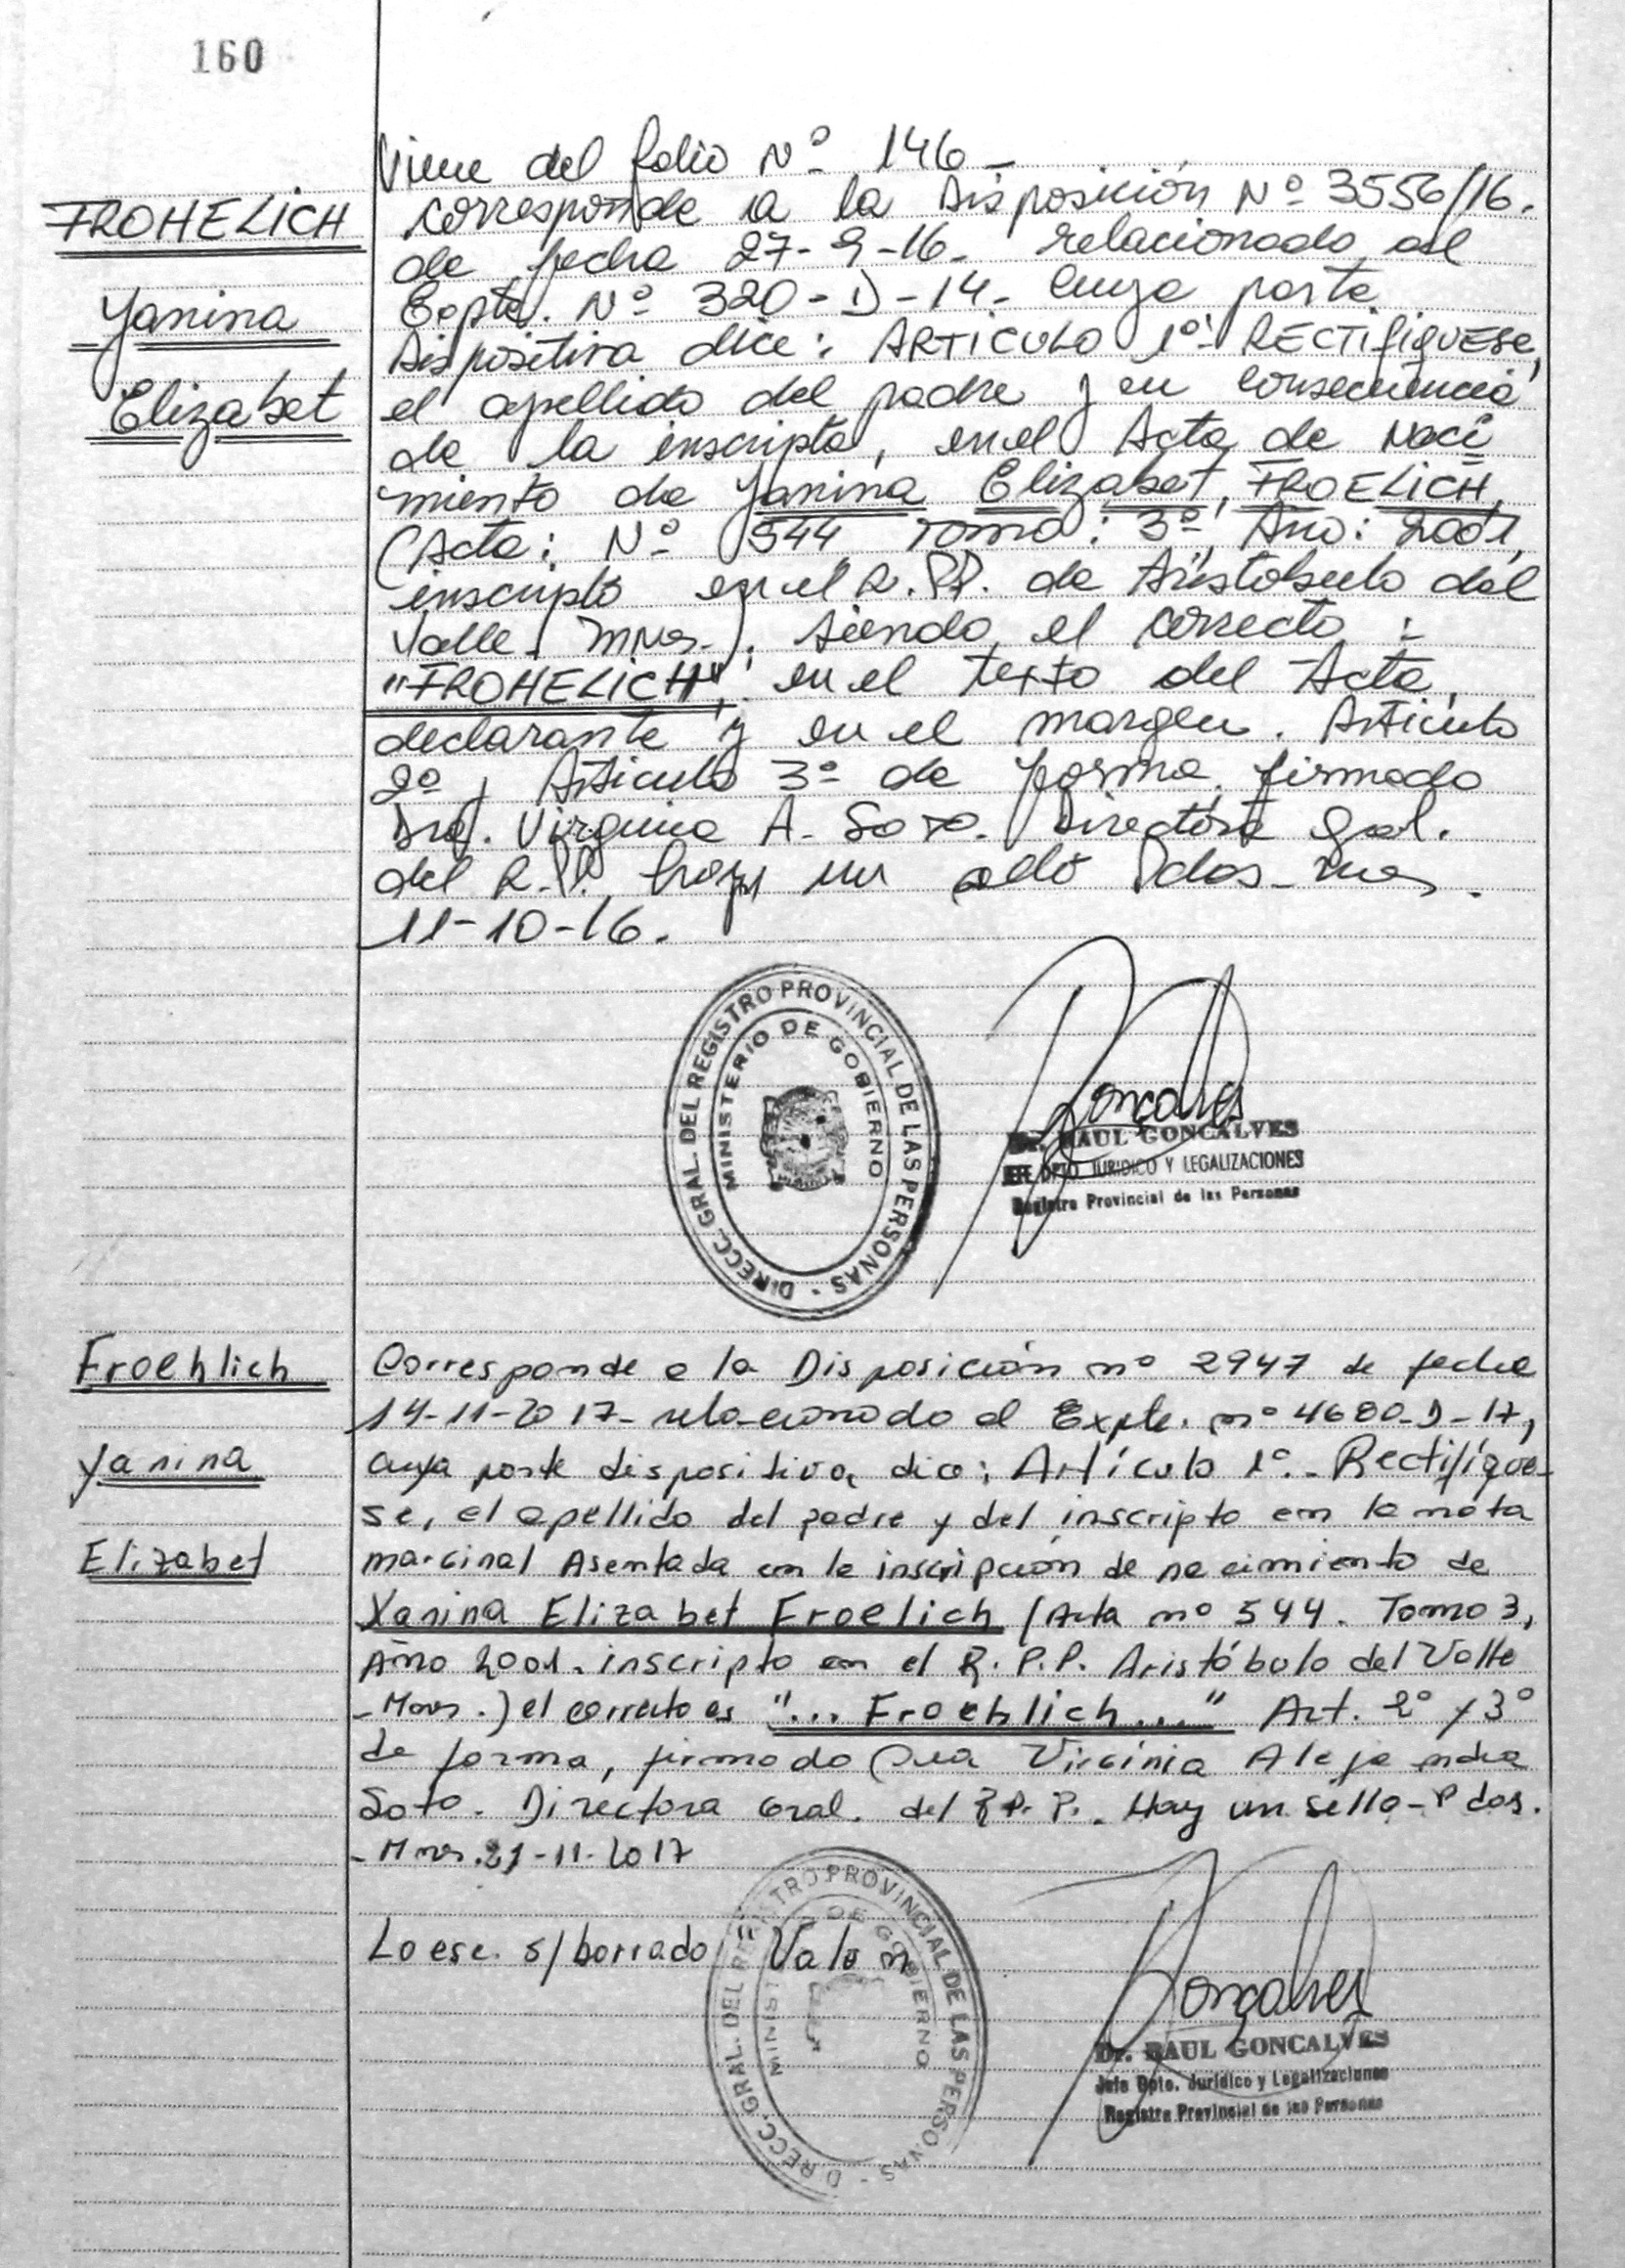 160
Viene del folio Nº 146-
FROHELICH
Yanina
Elizabet
corresponde a la Disposición Nº 3556/16.
de fecha 27-9-16- relacionado al
Expte. Nº 320-D-14- Cuya parte
Dispositiva dice: ARTICULO 1º: RECTIFIQUESE,
el apellido del padre y en consecuencia
de la inscripta, en el Acta de Naci
miento de Yanina Elizabet, FROELICH,
(Acta: Nº 544 Tomo: 3º, Año: 2001,
inscripto en el R.PP. de Aristobulo del
Valle- Mnes-). siendo el correcto:
"FROHELICH", en el texto del Acta,
declarante y en el margen. Articulo
2º y Articulo 3º de forma, firmado
Dra. Virginia A. Soto. Directora Gral.
del R.PP. hay un sello Pdas- Mnes.
11-10-16.
DIRECC. GRAL. DEL REGISTRO PROVINCIAL DE LAS PERSONAS -
MINISTERIO DE GOBIERNO
Goncalves
Dr. RAUL GONCALVES
JEFE DPTO JURIDICO Y LEGALIZACIONES
Registro Provincial de las Personas
Froehlich
Yanina
Elizabet
Corresponde a la Disposición nº 2947 de fecha
14-11-2017- relacionado al Expte. nº 4680-D-17,
cuya parte dispositiva, dice: Artículo 1º.- Rectifíque-
se, el apellido del padre y del inscripto en la nota
marginal Asentada en la inscripción de nacimiento de
Yanina Elizabet Froelich (Acta nº 544. Tomo 3,
Año 2001. inscripto en el R.P.P. Aristóbulo del Valle
-Mnes.) el correcto es "... Froehlich..." Art. 2º y 3º
de forma, firmado Dra Virginia Alejandra
Soto. Directora Gral. del R.P.P. Hay un sello-Pdas.
-Mnes. 21-11-2017
Lo esc. s/borrado "Vale"
DIRECC. GRAL. DEL REGISTRO PROVINCIAL DE LAS PERSONAS -
MINIST DE GOBIERNO
Gonçalves
Dr. RAUL GONCALVES
Jefe Dpto. Jurídico y Legalizaciones
Registro Provincial de las Personas